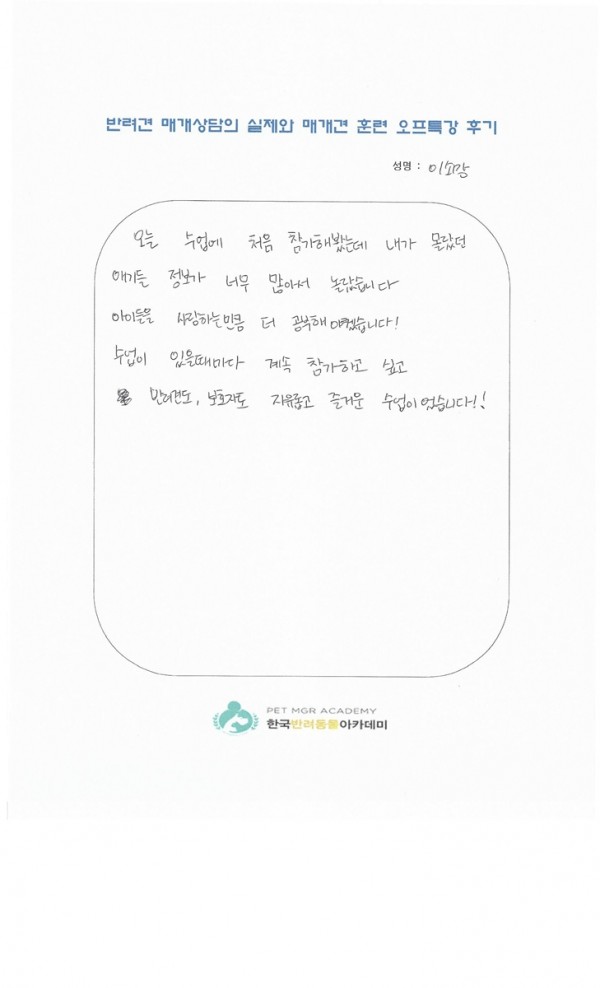 반려견 매개상담의 실제와 매개견 훈련 오프특강 후기
성명 : 이소랑
오늘 수업에 처음 참가해봤는데 내가 몰랐던
애기들 정보가 너무 많아서 놀랐습니다
아이들을 사랑하는만큼 더 공부해야겠습니다!
수업이 있을때마다 계속 참가하고 싶고
반려견도, 보호자도 자유롭고 즐거운 수업이었습니다!!
PET MGR ACADEMY
한국반려동물아카데미